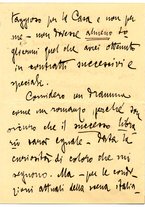 per la Casa e non per
me - non dovesse almeno to
gliermi quel che avrei ottenuto
in contratti successivi e
speciali.
Considero un dramma
come un romanzo perchè son
sicuro che il successo libra
rio sarà eguale - data la
curiosità di coloro che mi
seguono. Ma - per le condi
zioni attuali della scena italia-